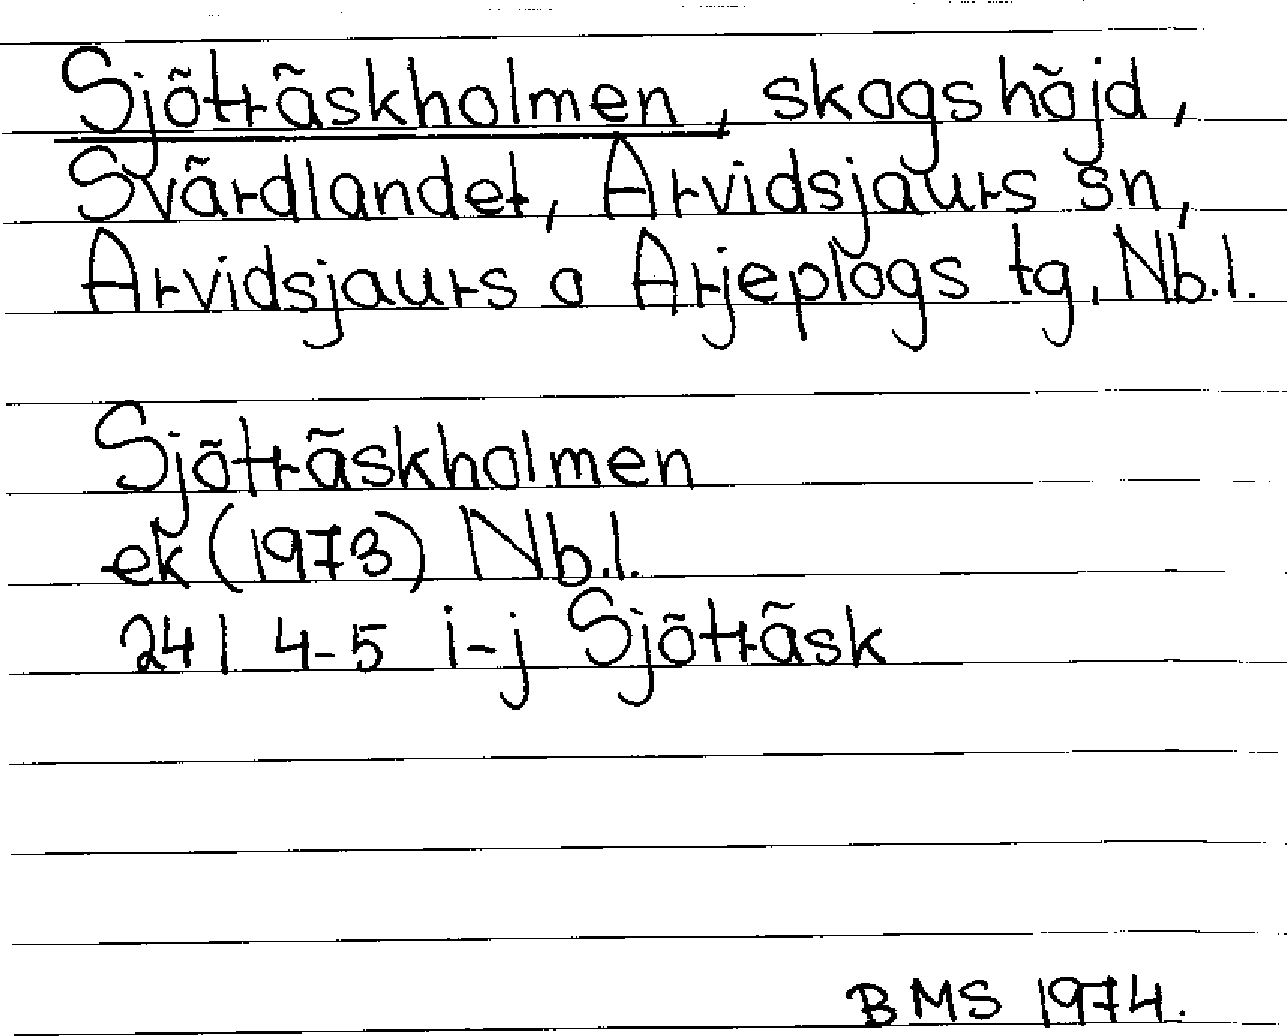 Sjöträskholmen, skogshöjd,
Svärdlandet, Arvidsjaurs sn,
Arvidsjaurs o Arjeplogs tg, Nb.l.
Sjöträskholmen
ek (1973) Nb.l.
24I 4-5 i-j Sjöträsk
BMS 1974.